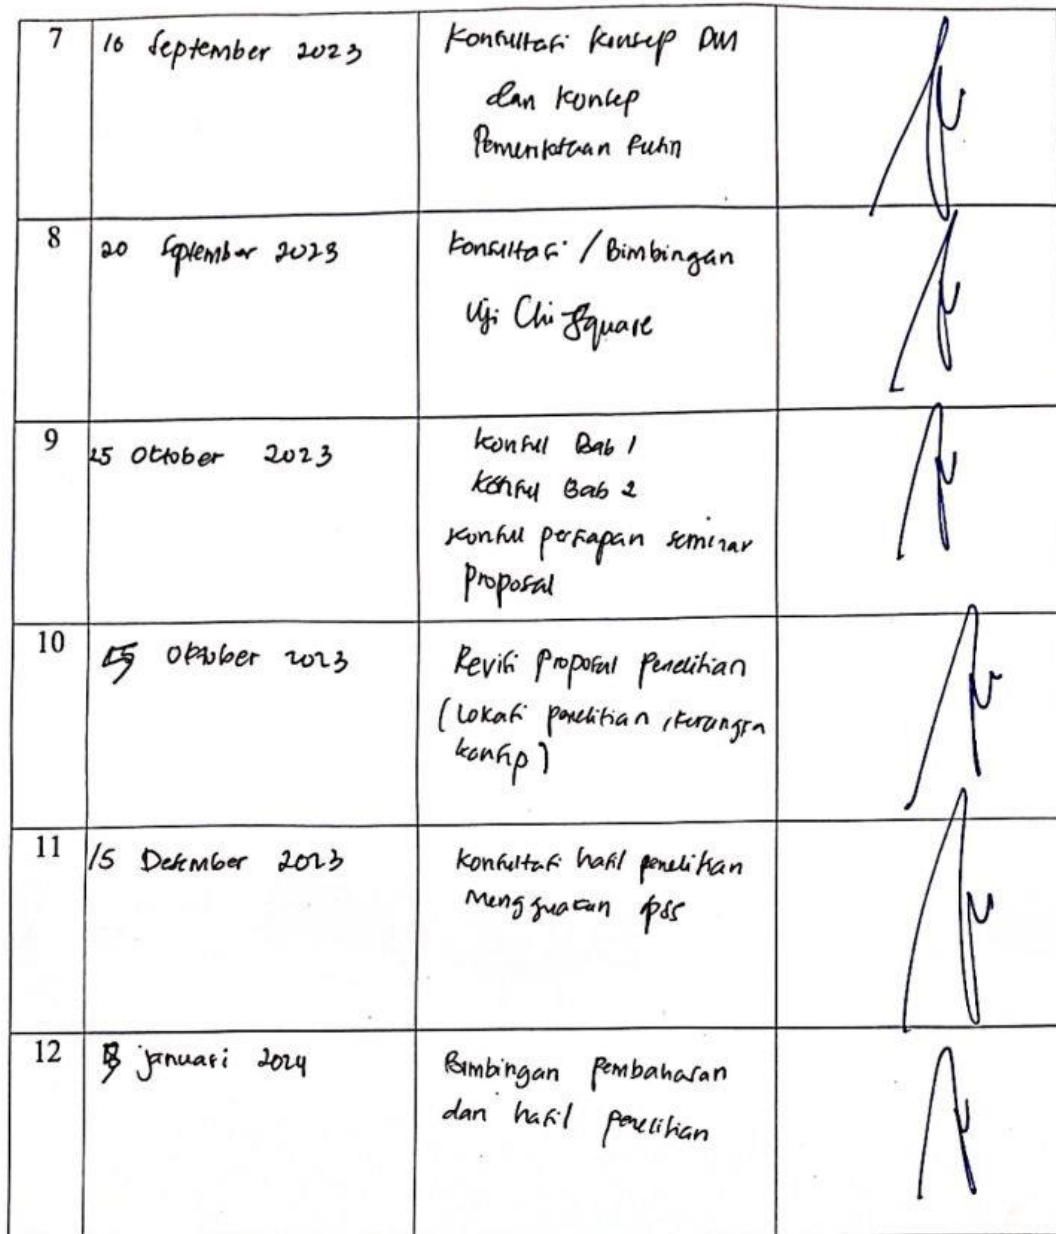 7 16 September 2023 Konsultasi Konsep DM
dan Konsep
Pemeriksaan
8 20 September 2023 Konsultasi / Bimbingan
Uji Chi Square
9 25 Oktober 2023 Konsul Bab 1
Konsul Bab 2
Konsul persiapan seminar
Proposal
10 Oktober 2023 Revisi Proposal Penelitian
(Lokasi penelitian, kerangka
konsep)
11 15 Desember 2023 Konsultasi hasil penelitian
Mengguakan spss
12 januari 2024 Bimbingan Pembahasan
dan hasil penelitian